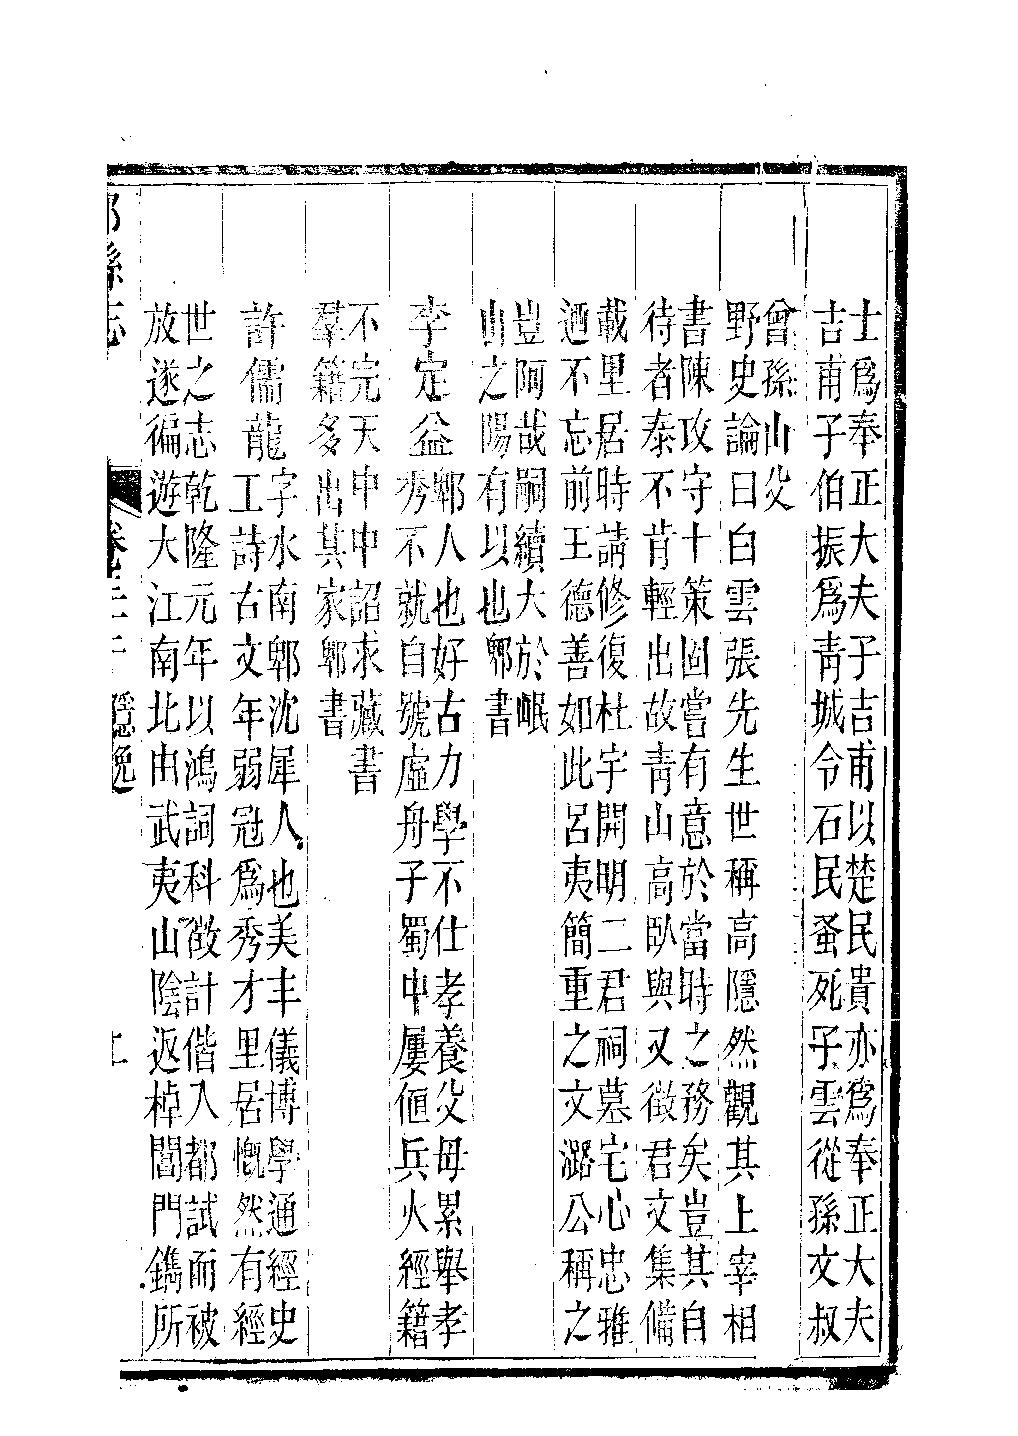 士爲奉正大夫子吉甫以楚民貴亦爲奉正大夫
吉甫子伯振爲靑城令石民蚤死子雲從孫文叔
曾孫山父
野史論曰白雲張先生世稱高隱然觀其上宰相
書陳攻守十策固嘗有意於當時之務矣豈其自
待者泰不肯輕出故靑山高臥與又徵君文集備
載里居時請修復杜宇開明二君祠墓宅心忠雅
迺不忘前王德善如此呂夷簡重之文潞公稱之
豈阿哉嗣續大於岷
山之陽有以也郫書
李定益
郫人也好古力學不仕孝養父母累舉孝
秀不就自號虛舟子蜀中屢値兵火經籍
不完天中中詔求藏書
羣籍多出其家郫書
許儒龍
字水南郫沈犀人也美丰儀博學通經史
工詩古文年弱冠爲秀才里居慨然有經
世之志乾隆元年以鴻詞科徵計偕入都試而被
放遂徧遊大江南北由武夷山陰返棹閶門鐫所
縣志
隱逸